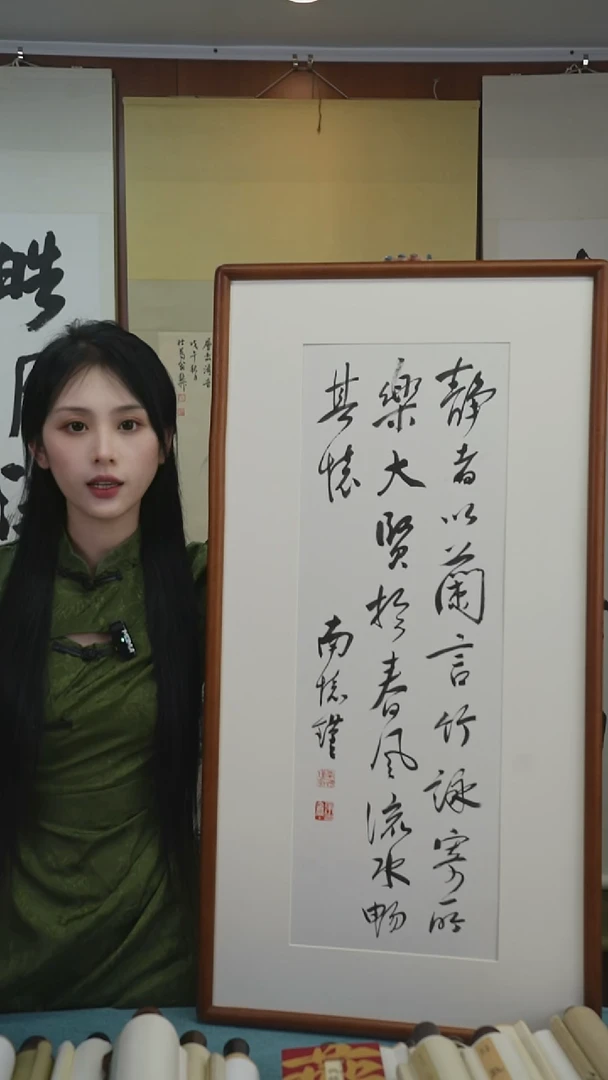 靜者以蘭言竹詠寄所
樂大賢於春風流水暢
其懷
南懷瑾
皓月